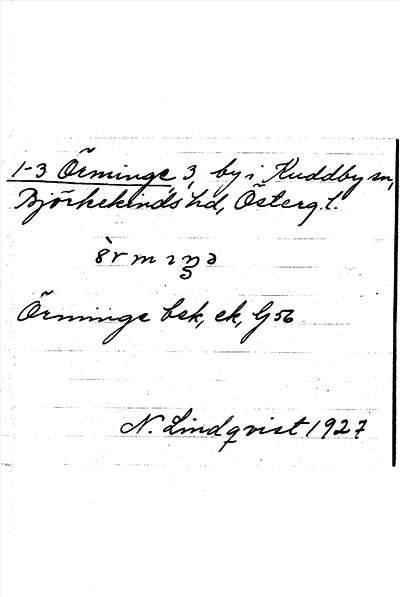 1-3 Örminge 3, by i Kuddby sn,
Björkekinds hd, Österg.l.
Örminge bek, ek, G56
N. Lindqvist 1927